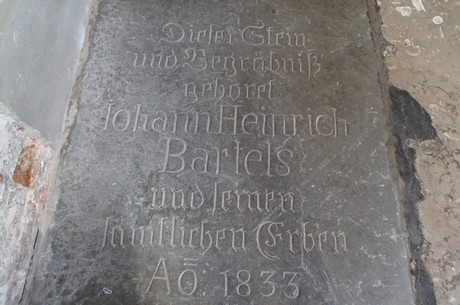 Dieser Stein
und Begräbniß
gehöret
Johann Heinrich
Bartels
und seinen
sämtlichen Erben
Aō: 1833